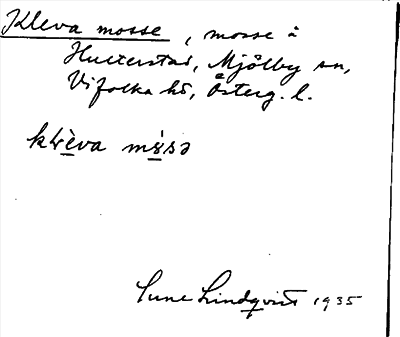 Kleva mosse, mosse å
Hulterstad, Mjölby sn,
Vifolka hd, Österg. l.
klèva mɔ̀sə
Sune Lindqvist 1935